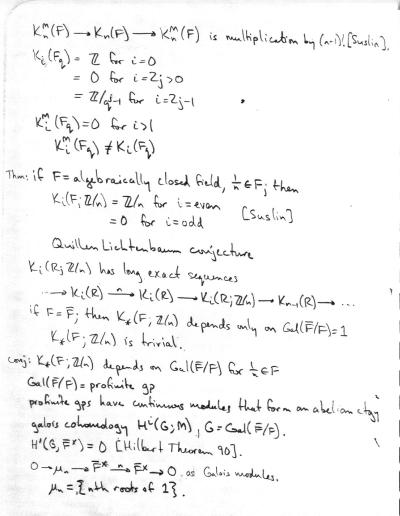 K_n^M(F) → K_n(F) → K_n^M(F) is multiplication by (n-1)! [Suslin].
K_i(F_q) = ℤ for i=0
= 0 for i=2j>0
= ℤ/q^j-1 for i=2j-1
K_i^M(F_q)=0 for i>1
K_i^M(F_q) ≠ K_i(F_q)
Thm: if F = algebraically closed field, 1/n ∈ F; then
K_i(F; ℤ/n) = ℤ/n for i=even
= 0 for i=odd [Suslin]
Quillen Lichtenbaum conjecture
K_i(R; ℤ/n) has long exact sequences
⋯ → K_i(R) —n→ K_i(R) → K_i(R; ℤ/n) → K_{n-1}(R) → ⋯
if F = F̄; then K_*(F; ℤ/n) depends only on Gal(F̄/F)=1
K_*(F; ℤ/n) is trivial.
Conj: K_*(F; ℤ/n) depends on Gal(F̄/F) for 1/n ∈ F
Gal(F̄/F) = profinite gp
profinite gps have continuous modules that form an abelian ctgy
galois cohomology H^i(G; M), G = Gal(F̄/F).
H^1(G, F̄^×) = 0 [Hilbert Theorem 90].
0 → μ_n → F̄^× —n→ F̄^× → 0 as Galois modules.
μ_n = {nth roots of 1}.